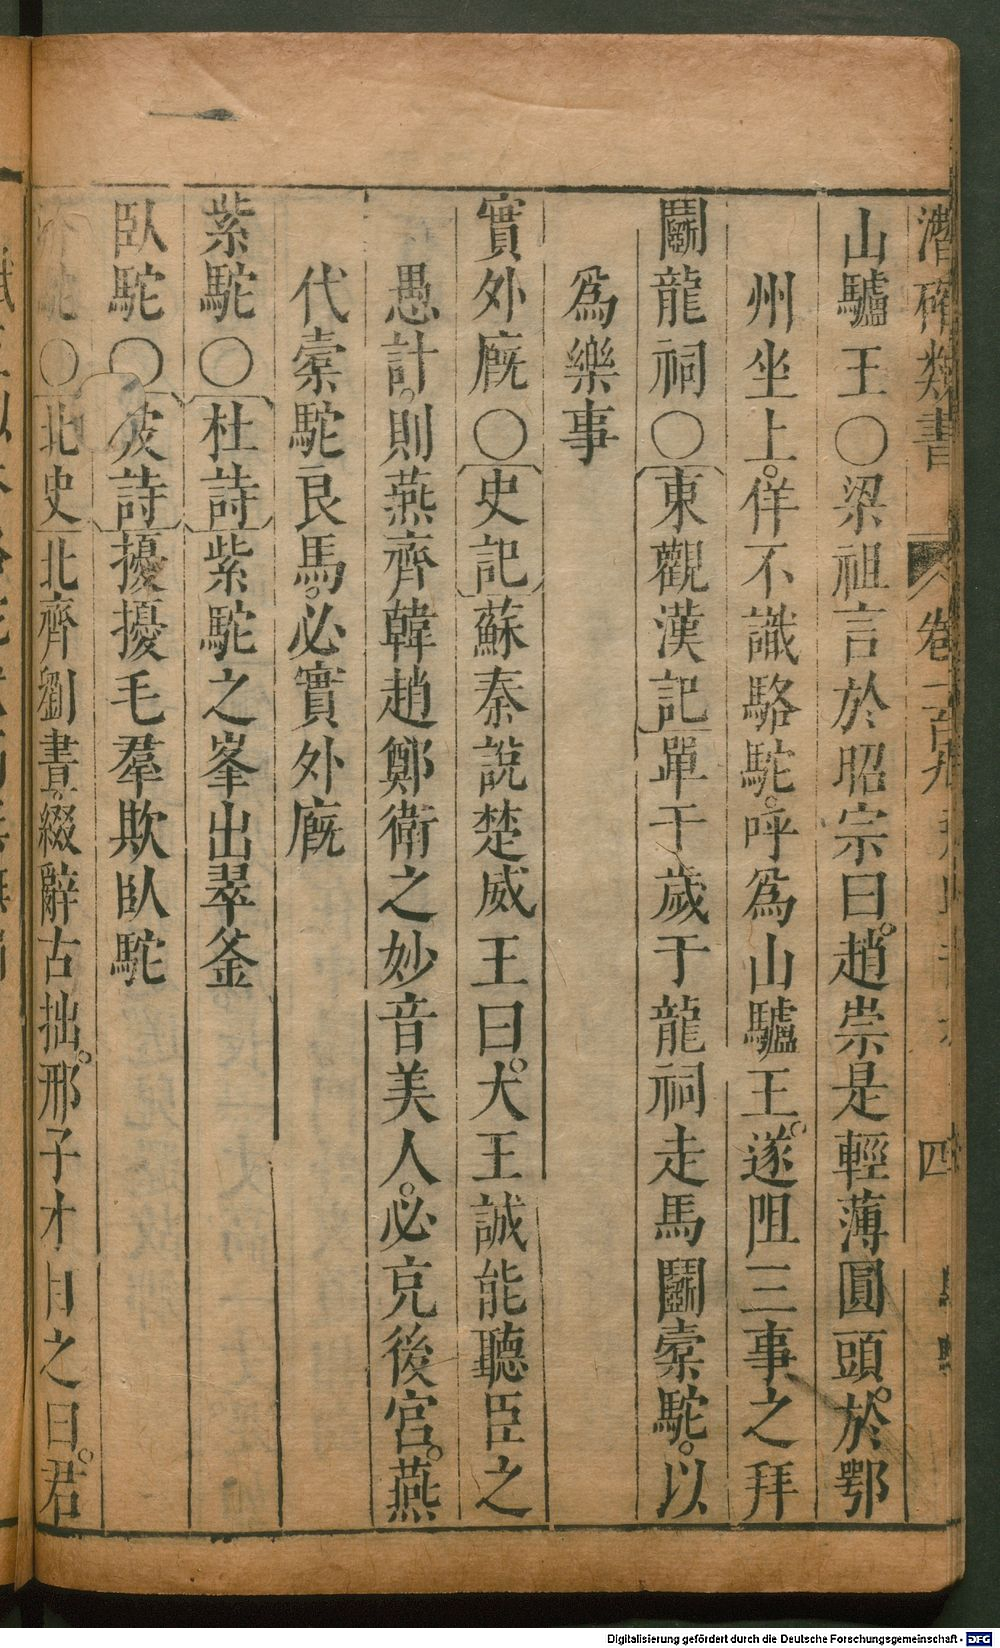 潛確類書 卷一百九 四
山驢王○梁祖言於昭宗曰。趙崇是輕薄圓頭。於鄂
州坐上。佯不識駱駝。呼爲山驢王。遂阻三事之拜
鬭龍祠○東觀漢記單干歲于龍祠走馬鬭橐駝。以
爲樂事
實外廐○史記蘇秦說楚威王曰。大王誠能聽臣之
愚計。則燕齊韓趙鄭衛之妙音美人。必充後宮。燕
代橐駝良馬。必實外廐
紫駝○杜詩紫駝之峯出翠釜
臥駝○坡詩擾擾毛羣欺臥駝
駝○北史北齊劉晝。綴辭古拙。邢子才目之曰。君
Digitalisierung gefördert durch die Deutsche Forschungsgemeinschaft - DFG